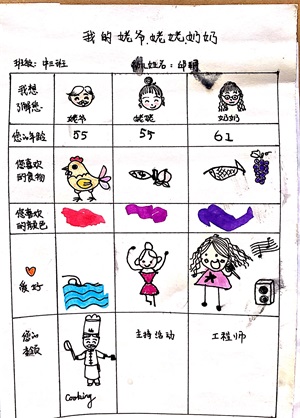 我的姥爷,姥姥,奶奶
班级:中三班 姓名:
我想
了解您:
姥爷 姥姥 奶奶
您的年龄 55 55 61
您喜欢
的食物
您喜欢
的颜色
爱好
您的
本领
主持活动 工程师
Cooking